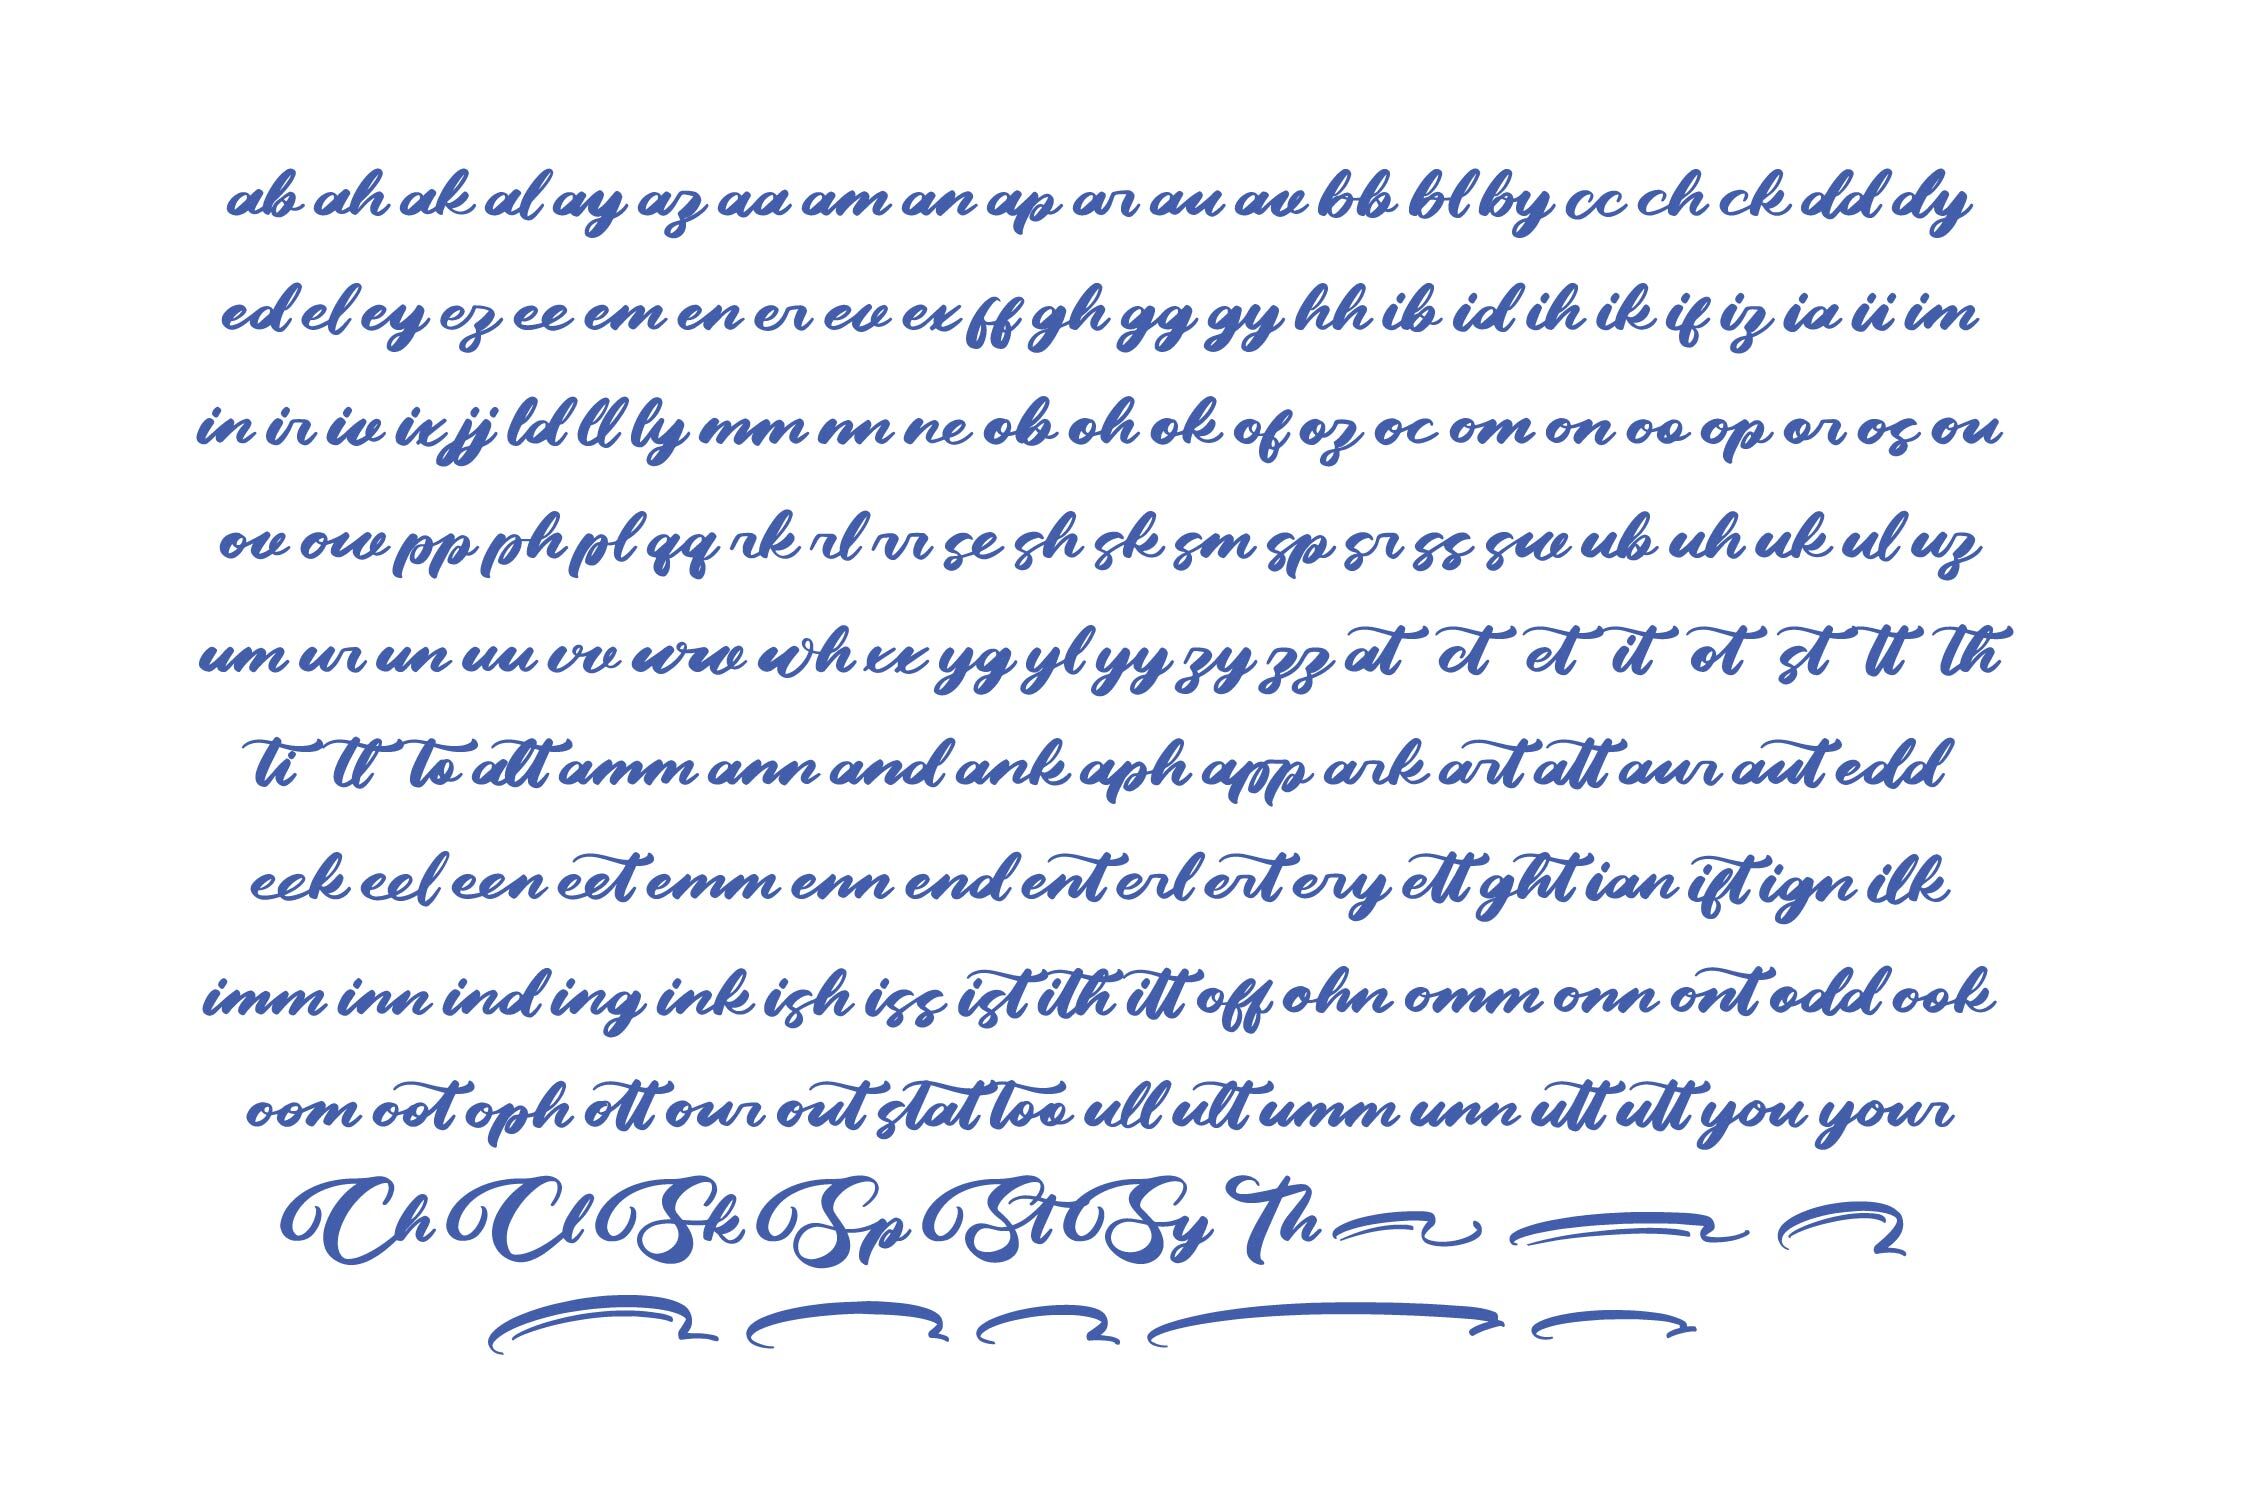 ab ah ak al ay az aa am an ap ar au av bb bl by cc ch ck dd dy
ed el ey ez ee em en er ev ex ff gh gg gy hh ib id ih ik if iz ia ii im
in ir iv ix jj ld ll ly mm nn ne ob oh ok of oz oc om on oo op or os ou
ov ow pp ph pl qq rk rl rr se sh sk sm sp sr ss sw ub uh uk ul uz
um ur un uu vv ww wh xx yg yl yy zy zz at ct et it ot st tt th
ti tl to alt amm ann and ank aph app ark art att aur aut edd
eek eel een eet emm enn end ent erl ert ery ett ght ian ift ign ilk
imm inn ind ing ink ish iss ist ith itt off ohn omm onn ont odd ook
oom oot oph ott our out stat too ull ult umm unn utt utt you your
Ch Cl Sk Sp St Sy Th